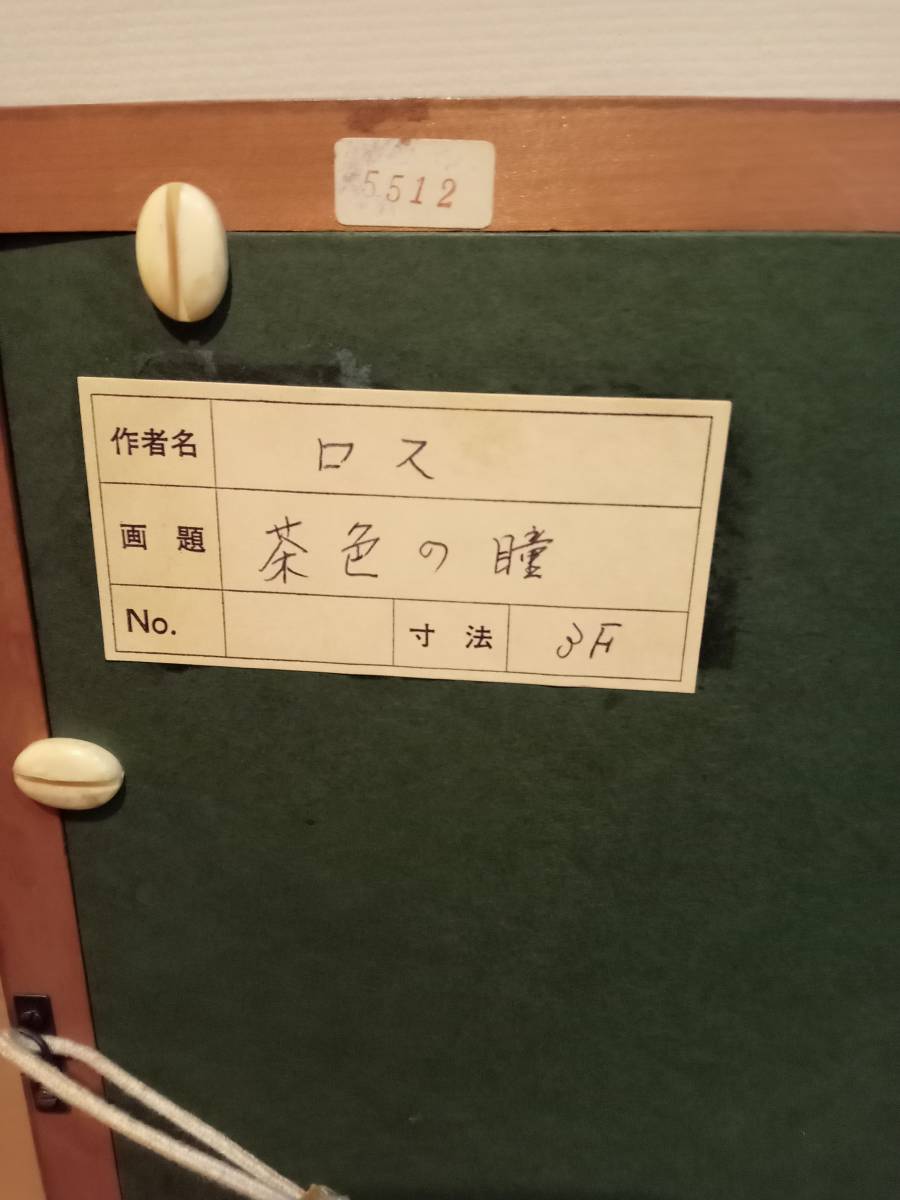 5512
作者名 ロス
画題 茶色の瞳
No. 寸法 3F